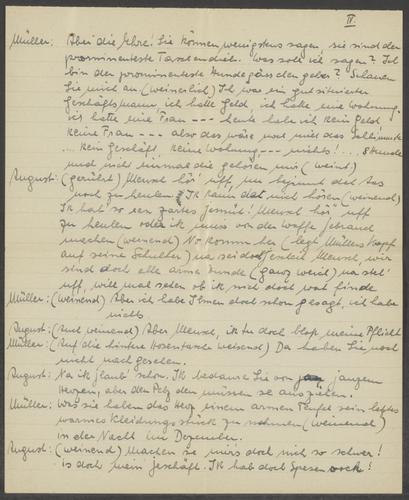 II.
Müller: Aber die Ehre! Sie können wenigstens sagen, sie sind der
prominenteste Taschendieb. Was soll ich sagen? Ich
bin der prominenteste Hunde geber? Schauen
Sie mich an (weinerlich) Ich war ein gut situierter
Geschäftsmann, ich hatte Geld, ich hatte eine Wohnung,
ich hatte eine Frau --- heute habe ich kein Geld
keine Frau --- also das wäre noch nicht das Schlimmste
... kein Geschäft, keine Wohnung --- nichts! ...
und nicht einmal die gehören mir (weint)
August: (gerührt) Mensch hör' uff, hier bejinnt det Aas
noch zu heulen. Ik kann dat nich hören (weinend)
Ik hab' so een zartes Jemüt! Mensch hör' uff
zu heulen oder ik muss von der Waffe Jebrauch
machen (weinend) No komm her (legt Müllers Kopf
auf seine Schulter) na sei doch Mensch, wir
sind doch alle arme Hunde (ganz weich) na steh'
uff, will mal sehen ob ik nich doch wat finde
Müller: (weinend) Aber ich habe Ihnen doch schon gesagt, ich habe
nichts
August: (Auch weinend) Aber Mensch, ik tu doch bloss meine Pflicht
Müller: (Auf die hintere Hosentasche weisend) Da haben Sie noch
nicht nachgesehen.
August: Na ik jlaub' schon. Ik bedaure Sie von janzem
Herzen, aber den Pelz den müssen se ausziehen.
Müller: Was sie haben das Herz einem armen Teufel sein letztes
warmes Kleidungsstück zu nehmen (weinend)
in der Nacht im Dezember.
August: (weinend) Machen sie mirs doch nich so schwer!
Is doch mein Geschäft. Ik hab doch Spesen ooch!